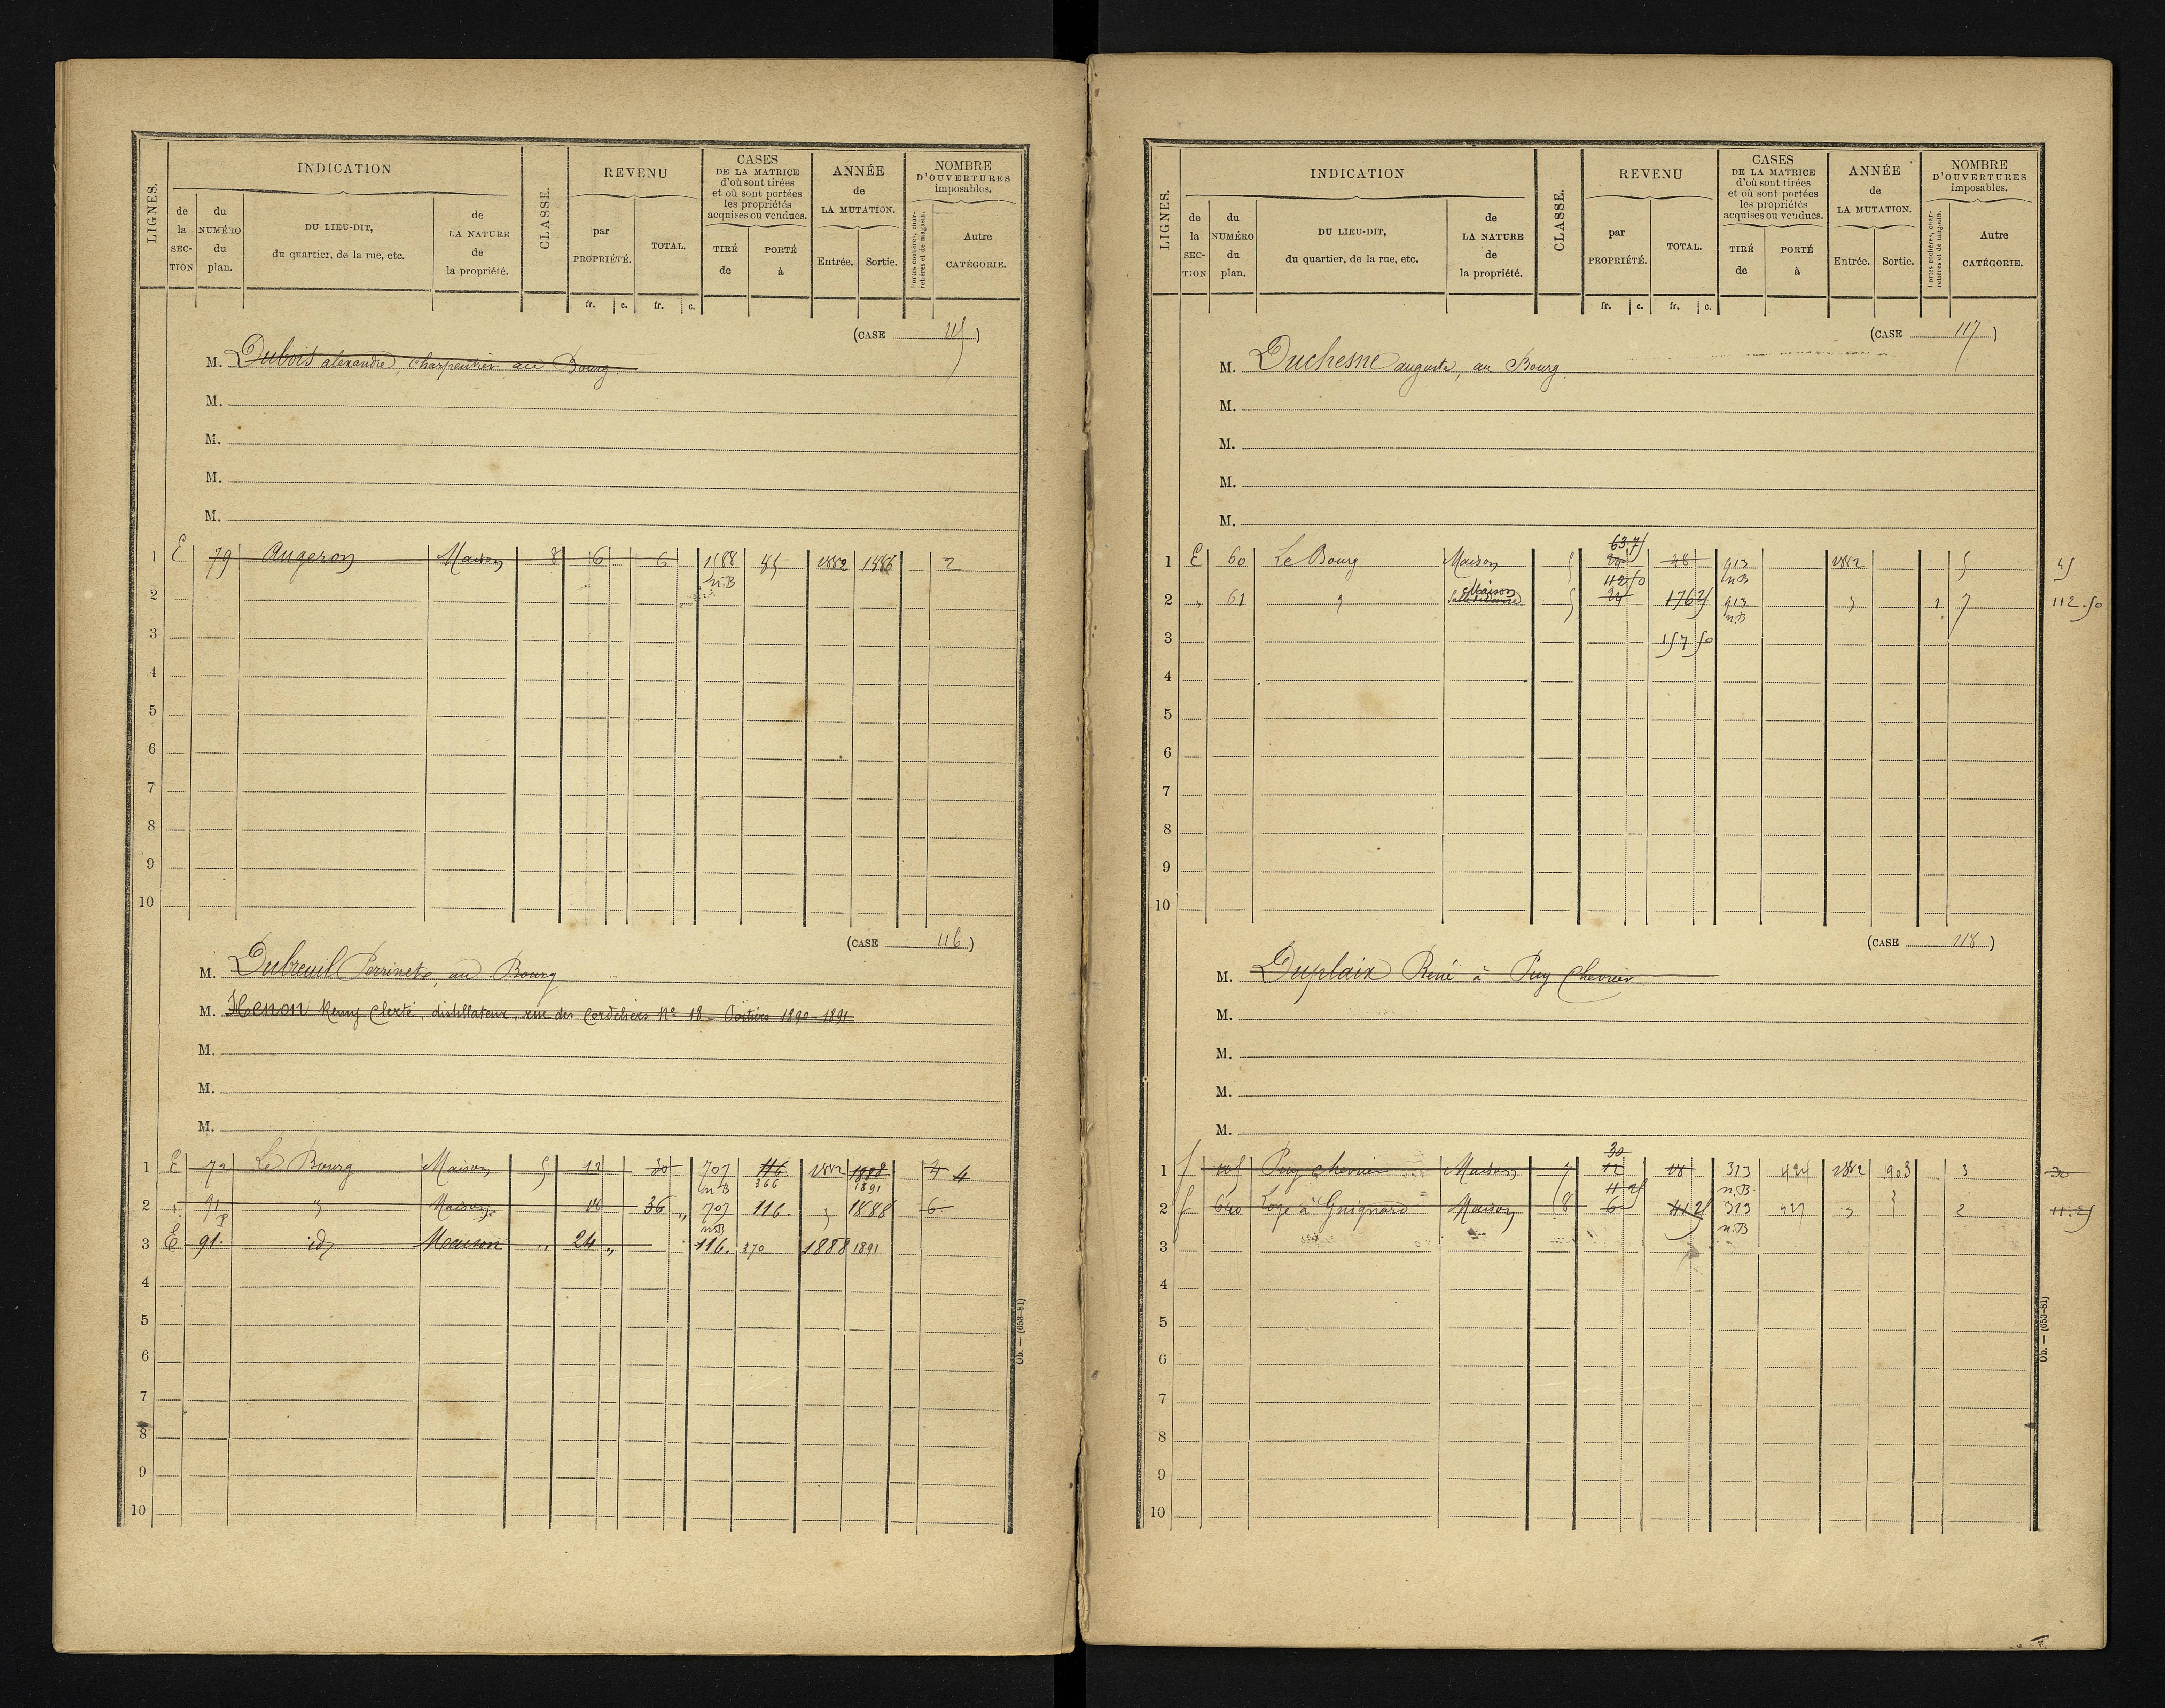 LIGNES.
INDICATION
de la SECTION
du NUMÉRO du plan.
DU LIEU-DIT, du quartier, de la rue, etc.
de LA NATURE de la propriété.
CLASSE.
REVENU
par PROPRIÉTÉ.
TOTAL.
CASES DE LA MATRICE d'où sont tirées et où sont portées les propriétés acquises ou vendues.
TIRÉ de
PORTÉ à
ANNÉE de LA MUTATION.
Entrée.
Sortie.
NOMBRE D'OUVERTURES imposables.
Portes cochères, charretières et de magasin.
Autre CATÉGORIE.
fr. c. fr. c.
(CASE 115)
M. Dubois alexandre, charpentier au Bourg
M.
M.
M.
M.
1 E 79 Augeron Maison 8 6 6 1588 85 1882 1886 2
n.B
2
3
4
5
6
7
8
9
10
(CASE 116)
M. Dubreuil Perrinet, au Bourg
M. Henon Remy Clerté, distillateur, rue des Cordeliers No 18 - Poitiers 1890-1891
M.
M.
M.
1 E 72 Le Bourg Maison 5 12 30 707 116 1882 1888 4 4
n B 366 1891
2 " 91 p " Maison 18 36 " 707 116 " 1888 6
n.B
3 E 91 id Maison " 24 " 116 370 1888 1891
4
5
6
7
8
9
10
Ob. — (653-81)
LIGNES.
INDICATION
de la SECTION
du NUMÉRO du plan.
DU LIEU-DIT, du quartier, de la rue, etc.
de LA NATURE de la propriété.
CLASSE.
REVENU
par PROPRIÉTÉ.
TOTAL.
CASES DE LA MATRICE d'où sont tirées et où sont portées les propriétés acquises ou vendues.
TIRÉ de
PORTÉ à
ANNÉE de LA MUTATION.
Entrée.
Sortie.
NOMBRE D'OUVERTURES imposables.
Portes cochères, charretières et de magasin.
Autre CATÉGORIE.
fr. c. fr. c.
(CASE 117)
M. Duchesne auguste, au Bourg
M.
M.
M.
M.
63.75
1 E 60 Le Bourg Maison 5 24 48 913 1882 5 45
n B
112 50
Maison
2 " 61 " Salle de danse 5 24 176 25 913 " 1 7 112.50
n.B
3 157 50
4
5
6
7
8
9
10
(CASE 118)
M. Duplaix René à Puy Chevrier
M.
M.
M.
M.
30
1 f Puy chevrier Maison 7 12 18 313 424 1882 1903 3 30
n.B.
11 25
2 f 640 Loge à Guignard Maison 8 6 41 25 313 427 " " 2 11.25
n.B
3
4
5
6
7
8
9
10
Ob. — (653-81)